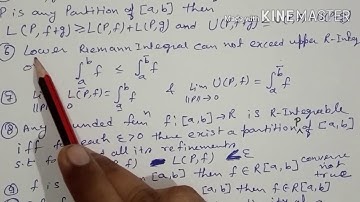 P is any Partition of [a, b] then
L(P, f+g) ≥ L(P, f) + L(P, g) and U(P, f+g) ≤
⑥ Lower Riemann Integral can not exceed upper R-Integ
∫_a^b f ≤ ∫_a^b f
⑦ L(P, f) = ∫_a^b f & lim ||P||→0 U(P, f) = ∫_a^b f
⑧ Any funᶜⁿ f: [a, b] → R is R-Integrable
iff for each ε > 0 there exist a partition P of [a, b]
s.t. for all its refinements
L(P, f) < ε
⑨ f is [a, b] then f ∈ R[a, b] converse not true
[a, b] then f ∈ R[a, b]